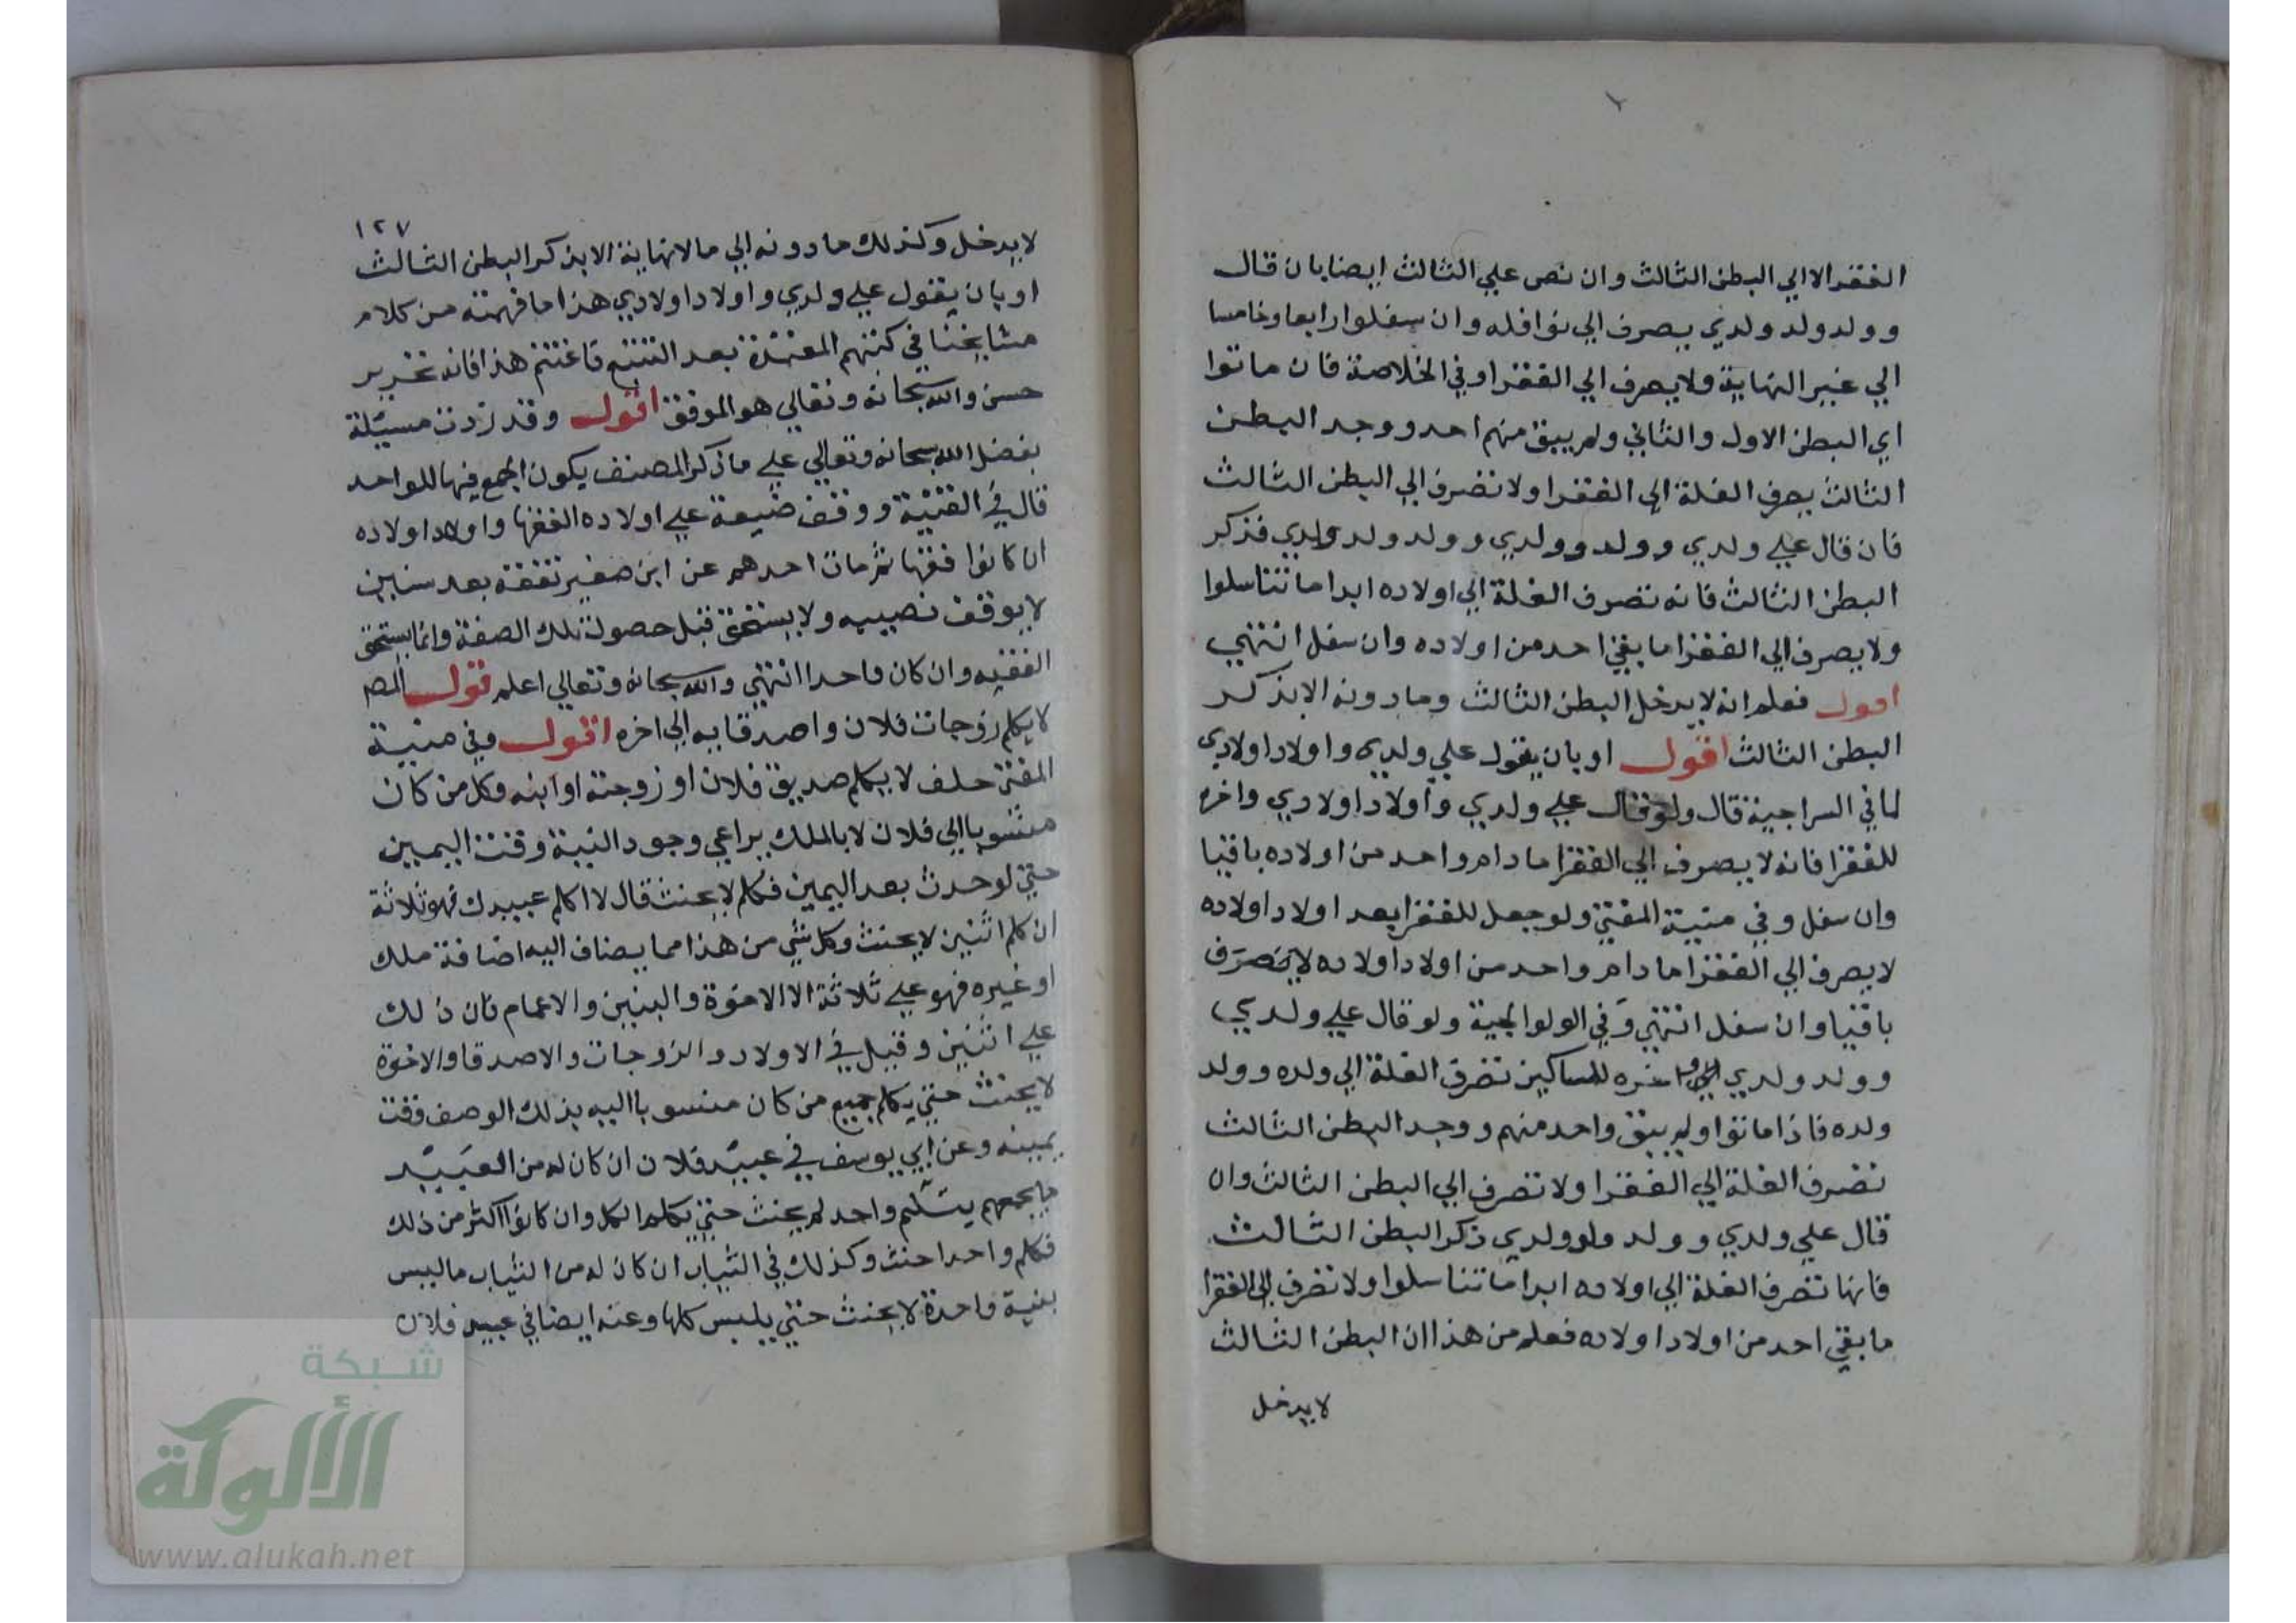 الفقرا الا الي البطن الثالث وان نص علي الثالث ايضا بان قال
وولد ولد ولدي يصرف الي نوافله وان سفلوا رابعا وخامسا
الي غير النهاية ولا يصرف الي الفقرا وفي الخلاصة فان ماتوا
اي البطن الاول والثاني ولم يبق منهم احد ووجد البطن
الثالث يصرف الغلة الي الفقرا ولا تصرف الي البطن الثالث
فان قال علي ولدي وولد وولدي وولد ولد ولدي فذكر
البطن الثالث فانه تصرف الغلة الي اولاده ابدا ما تناسلوا
ولا يصرف الي الفقرا ما بقي احد من اولاده وان سفل انتهي
اقول فعلم انه لا يدخل البطن الثالث وما دونه الا بذكر
البطن الثالث اقول او بان يقول علي ولدي واولاد اولادي
لما في السراجية قال ولو قال علي ولدي واولاد اولادي واخره
للفقرا فانه لا يصرف الي الفقرا ما دام واحد من اولاده باقيا
وان سفل وفي منية المفتي ولو جعل للفقرا بعد اولاد اولاده
لا يصرف الي الفقرا ما دام واحد من اولاد اولاده لا يتصرف
باقيا وان سفل انتهي وفي الولوالجية ولو قال علي ولدي
وولد ولدي اخره للمساكين تصرف الغلة الي ولده وولد
ولده فاذا ماتوا ولم يبق واحد منهم ووجد البطن الثالث
تصرف الغلة الي الفقرا ولا تصرف الي البطن الثالث وان
قال علي ولدي وولد ولدي ذكر البطن الثالث
فانها تصرف الغلة الي اولاده ابدا ما تناسلوا ولا تصرف الي الفقرا
ما بقي احد من اولاد اولاده فعلم من هذا ان البطن الثالث
لا يدخل
١٢٧
لا يدخل وكذلك ما دونه الي ما لا نهاية الا بذكر البطن الثالث
او بان يقول علي ولدي واولاد اولادي هذا ما فهمته من كلام
مشايخنا في كتبهم المعتمدة بعد التتبع فاغتنم هذا فانه تحرير
حسن والله سبحانه وتعالي هو الموفق اقول وقد زدت مسيلة
بفضل الله سبحانه وتعالي علي ما ذكر المصنف يكون الجمع فيها للواحد
قال في القنية ووقف ضيعة علي اولاده الفقها واولاد اولاده
ان كانوا فقها ثم مات احدهم عن ابن صغير تفقه بعد سنين
لا يوقف نصيبه ولا يستحق قبل حصول تلك الصفة وانما يستحق
الفقيه وان كان واحدا انتهي والله سبحانه وتعالي اعلم قول المص
لا يكلم زوجات فلان واصدقايه الي اخره اقول وفي منية
المفتي حلف لا يكلم صديق فلان او زوجته او ابنه وكل من كان
منسوبا الي فلان لا بالملك يراعي وجود النية وقت اليمين
حتي لو حدث بعد اليمين فكلم لا يحنث قال لا اكلم عبيدك فهو ثلاثة
ان كلم اثنين لا يحنث وكل شي من هذا مما يضاف اليه اضافة ملك
او غيره فهو علي ثلاثة الا الاخوة والبنين والاعمام فان ذلك
علي اثنين وقيل في الاولاد والزوجات والاصدقا والاخوة
لا يحنث حتي يكلم جميع من كان منسوبا اليه بذلك الوصف وقت
يمينه وعن ابي يوسف في عبيد فلان ان كان له من العبيد
ما يجمعهم بتسليم واحد لم يحنث حتي يكلم الكل وان كانوا اكثر من ذلك
فكلم واحدا حنث وكذلك في الثياب ان كان له من الثياب ما لبس
واحدة لا يحنث حتي يلبس كلها وعنه ايضا في عبيد فلان
شبكة
الألوكة
www.alukah.net